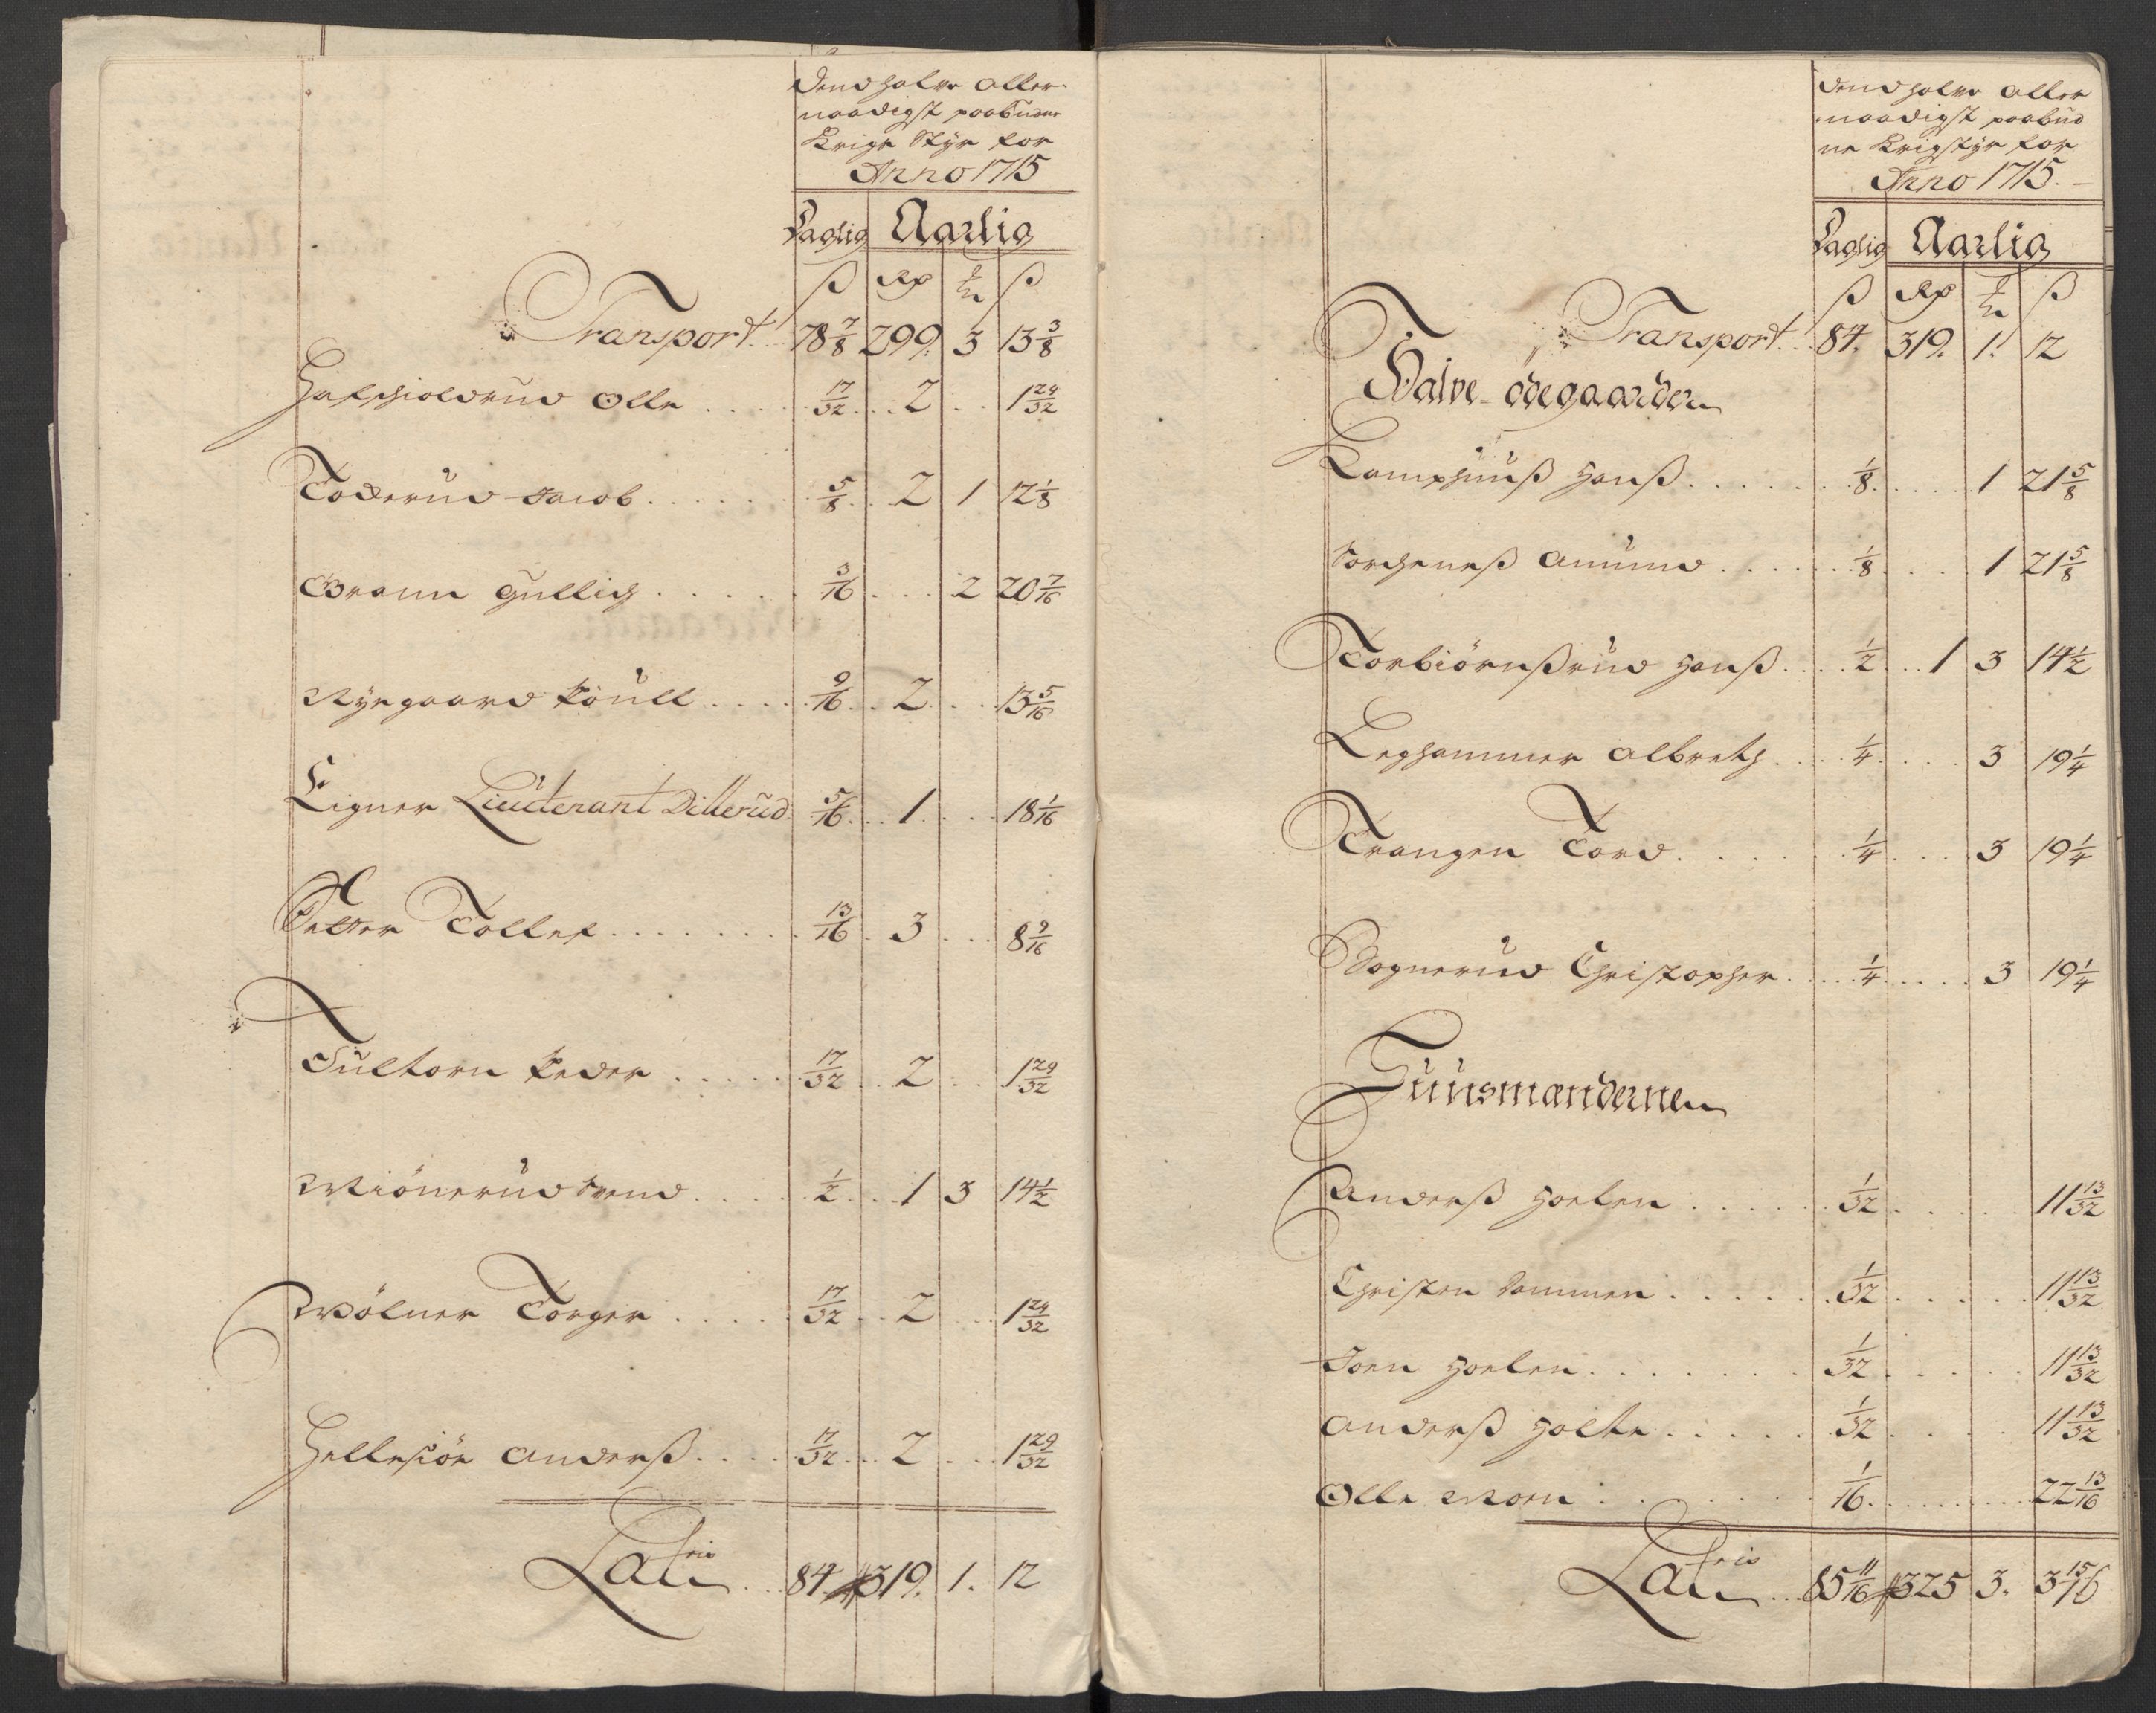 Dend halve aller-
naadigst paabudne
Krigs Styr for
Anno 1715
Daglig Aarlig
ß Rd ort ß
Transport 78 7/8 299. 3 13 3/8
Hafschioldrud Olle 17/32 2 1 29/32
Toderud Jacob 5/8 2 1 12 1/8
Braaen Gullich 3/16 2 20 7/16
Nyegaard Poull 9/16 2 13 5/16
Ligner Lieutenant Dillerud 5/16 1 18 1/16
Sætter Tollef 13/16 3 8 9/16
Fultorn Peder 17/32 2 1 29/32
Miönerud Svend 1/2 1 3 14 1/2
Mölner Torger 17/32 2 1 29/32
Hellesiöe Anderß 17/32 2 1 29/32
Lateris 84. 319. 1. 12
Dend halve aller
naadigst paabud
ne Krigstyr for
Anno 1715.
Daglig Aarlig
ß Rd ort ß
Transport 84. 319. 1. 12
Halve ødegaarder
Kamphuuß Hanß 1/8 1 21 5/8
Torgeneß Amund 1/8 1 21 5/8
Torbiörnßrud Hanß 1/2 1 3 14 1/2
Leghammer Albreth 1/4 3 19 1/4
Trangen Tord 1/4 3 19 1/4
Wognerud Christopher 1/4 3 19 1/4
Huusmænderne
Anderß Hoelen 1/32 11 13/32
Christen Dammen 1/32 11 13/32
Joen Hoelen 1/32 11 13/32
Anderß Holte 1/32 11 13/32
Olle Moen 1/16 22 13/16
Lateris 85 11/16 325 3. 3 15/16